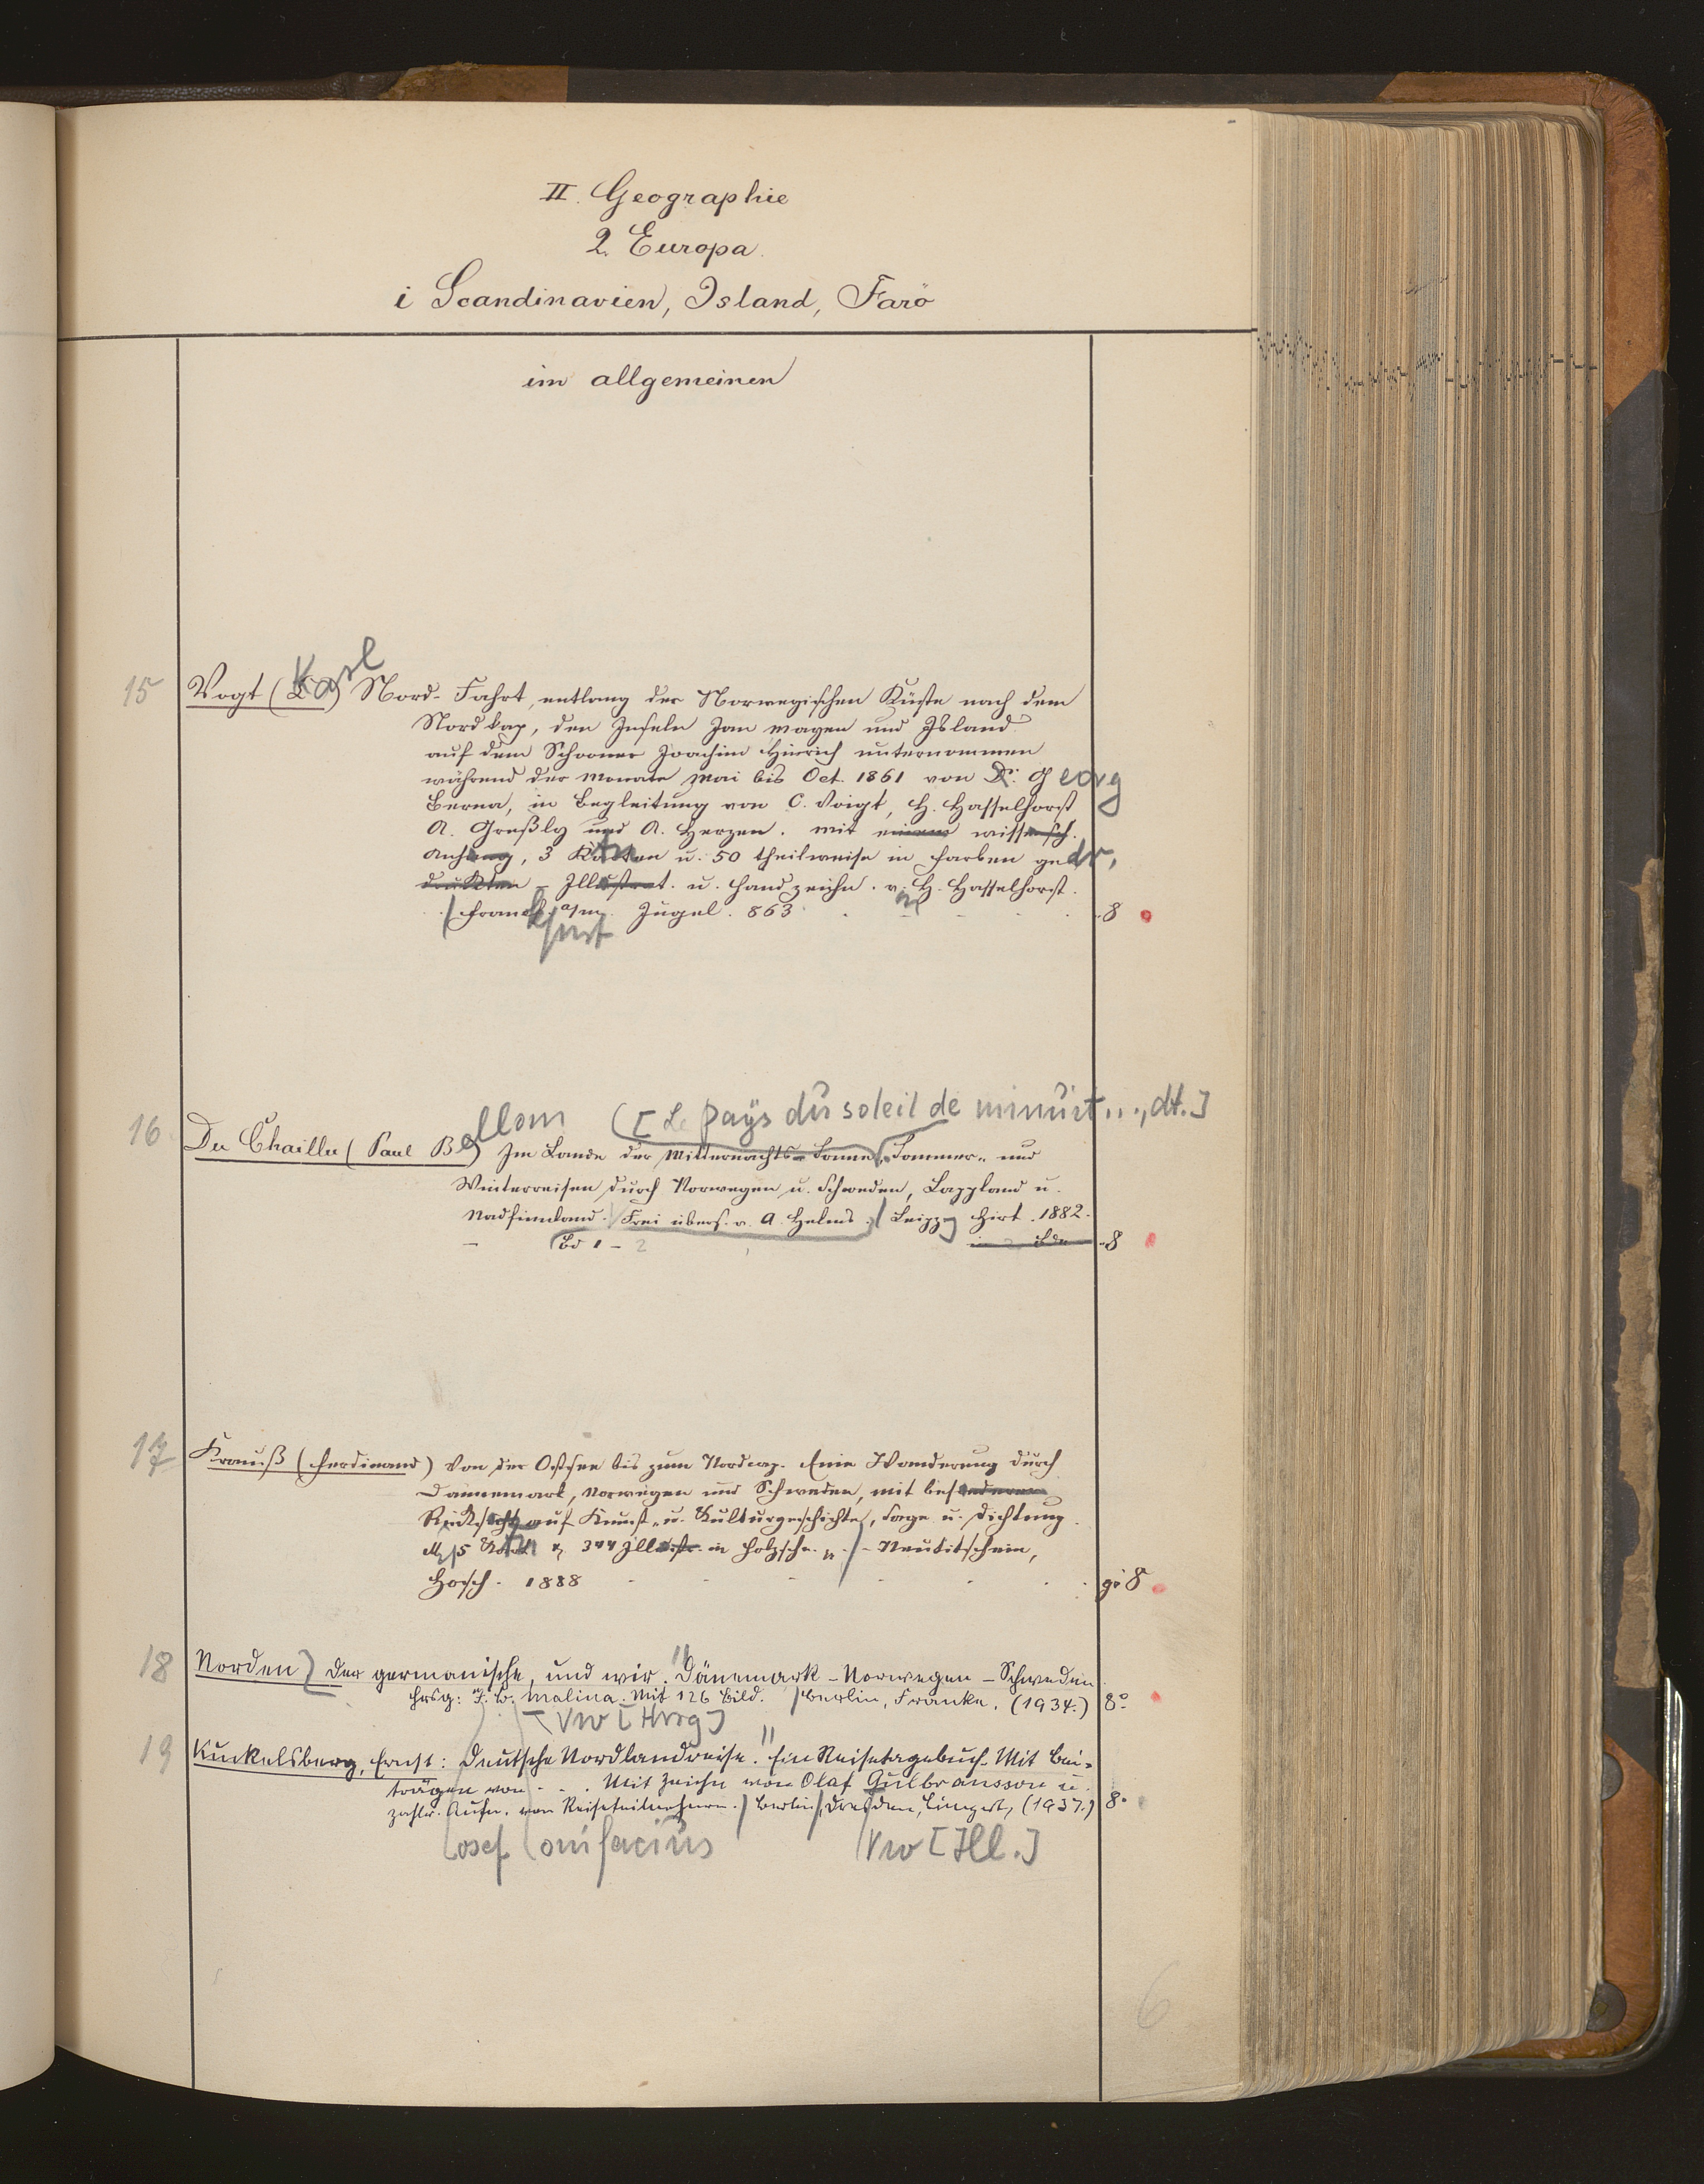 II. Geographie
2. Europa.
i Scandinavien, Island, Farö
im allgemeinen
Karl
15 Vogt ( ) Nord-Fahrt, entlang der Norwegischen Küste nach dem
Nordkap, den Inseln Jan Mayen und Island
auf dem Schooner Joachim Hinrich unternommen
während der Monate Mai bis Oct. 1861 von Dr. Georg
Berna, in Begleitung von C. Voigt, H. Hasselhorst
A. Greßly und A. Herzen. Mit einem wissensch.
Anhang, 3 Karten u. 50 theilweise in Farben gedr.
druckten - Illustrat. u. Handzeichn. v. H. Hasselhorst.
Frankfurt a/m. Jügel. 863 8
[Le pays du soleil de minuit..., dt.]
16 Du Chaillu (Paul Belloni) Im Lande der Mitternachts-Sonne. Sommer- und
Winterreisen durch Norwegen u. Schweden, Lappland u.
Nordfinnland. Frei übers. v. A. Helms. Leipzg Hirt. 1882.
- Bd 1 - 2 in 2 Bdn 8
17 Krauß (Ferdinand) Von der Ostsee bis zum Nordcap. Eine Wanderung durch
Dännemark, Norwegen und Schweden, mit besonderer
Rücksicht auf Kunst- u. Kulturgeschichte, Sage u. Dichtung.
M. 5 Kart. & 344 Illustr. in Holzschn. - Neutitschein,
Hosch. 1888 gr 8
18 Norden, Der germanische, und wir. Dänemark - Norwegen - Schweden.
Hrsg: J. B. Malina. Mit 126 Bild. Berlin, Franke. (1934.) 8°
Vw [Hrsg]
19 Kunkelsberg, Ernst: Deutsche Nordlandreise. Ein Reisetagebuch. Mit Bei-
trägen von . . . Mit Zeichn von Olaf Gulbransson u.
zahlr. Aufn. von Reiseteilnehmern. Berlin, Dresden, Limpert, (1937.) 8°
osef onifacius Vw [Ill.]
6